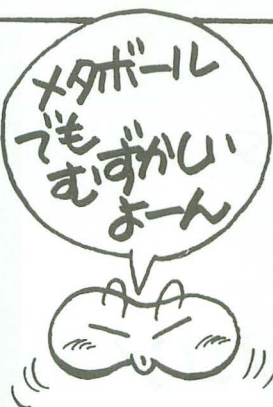 メタボール
でも
むずかしい
よーん